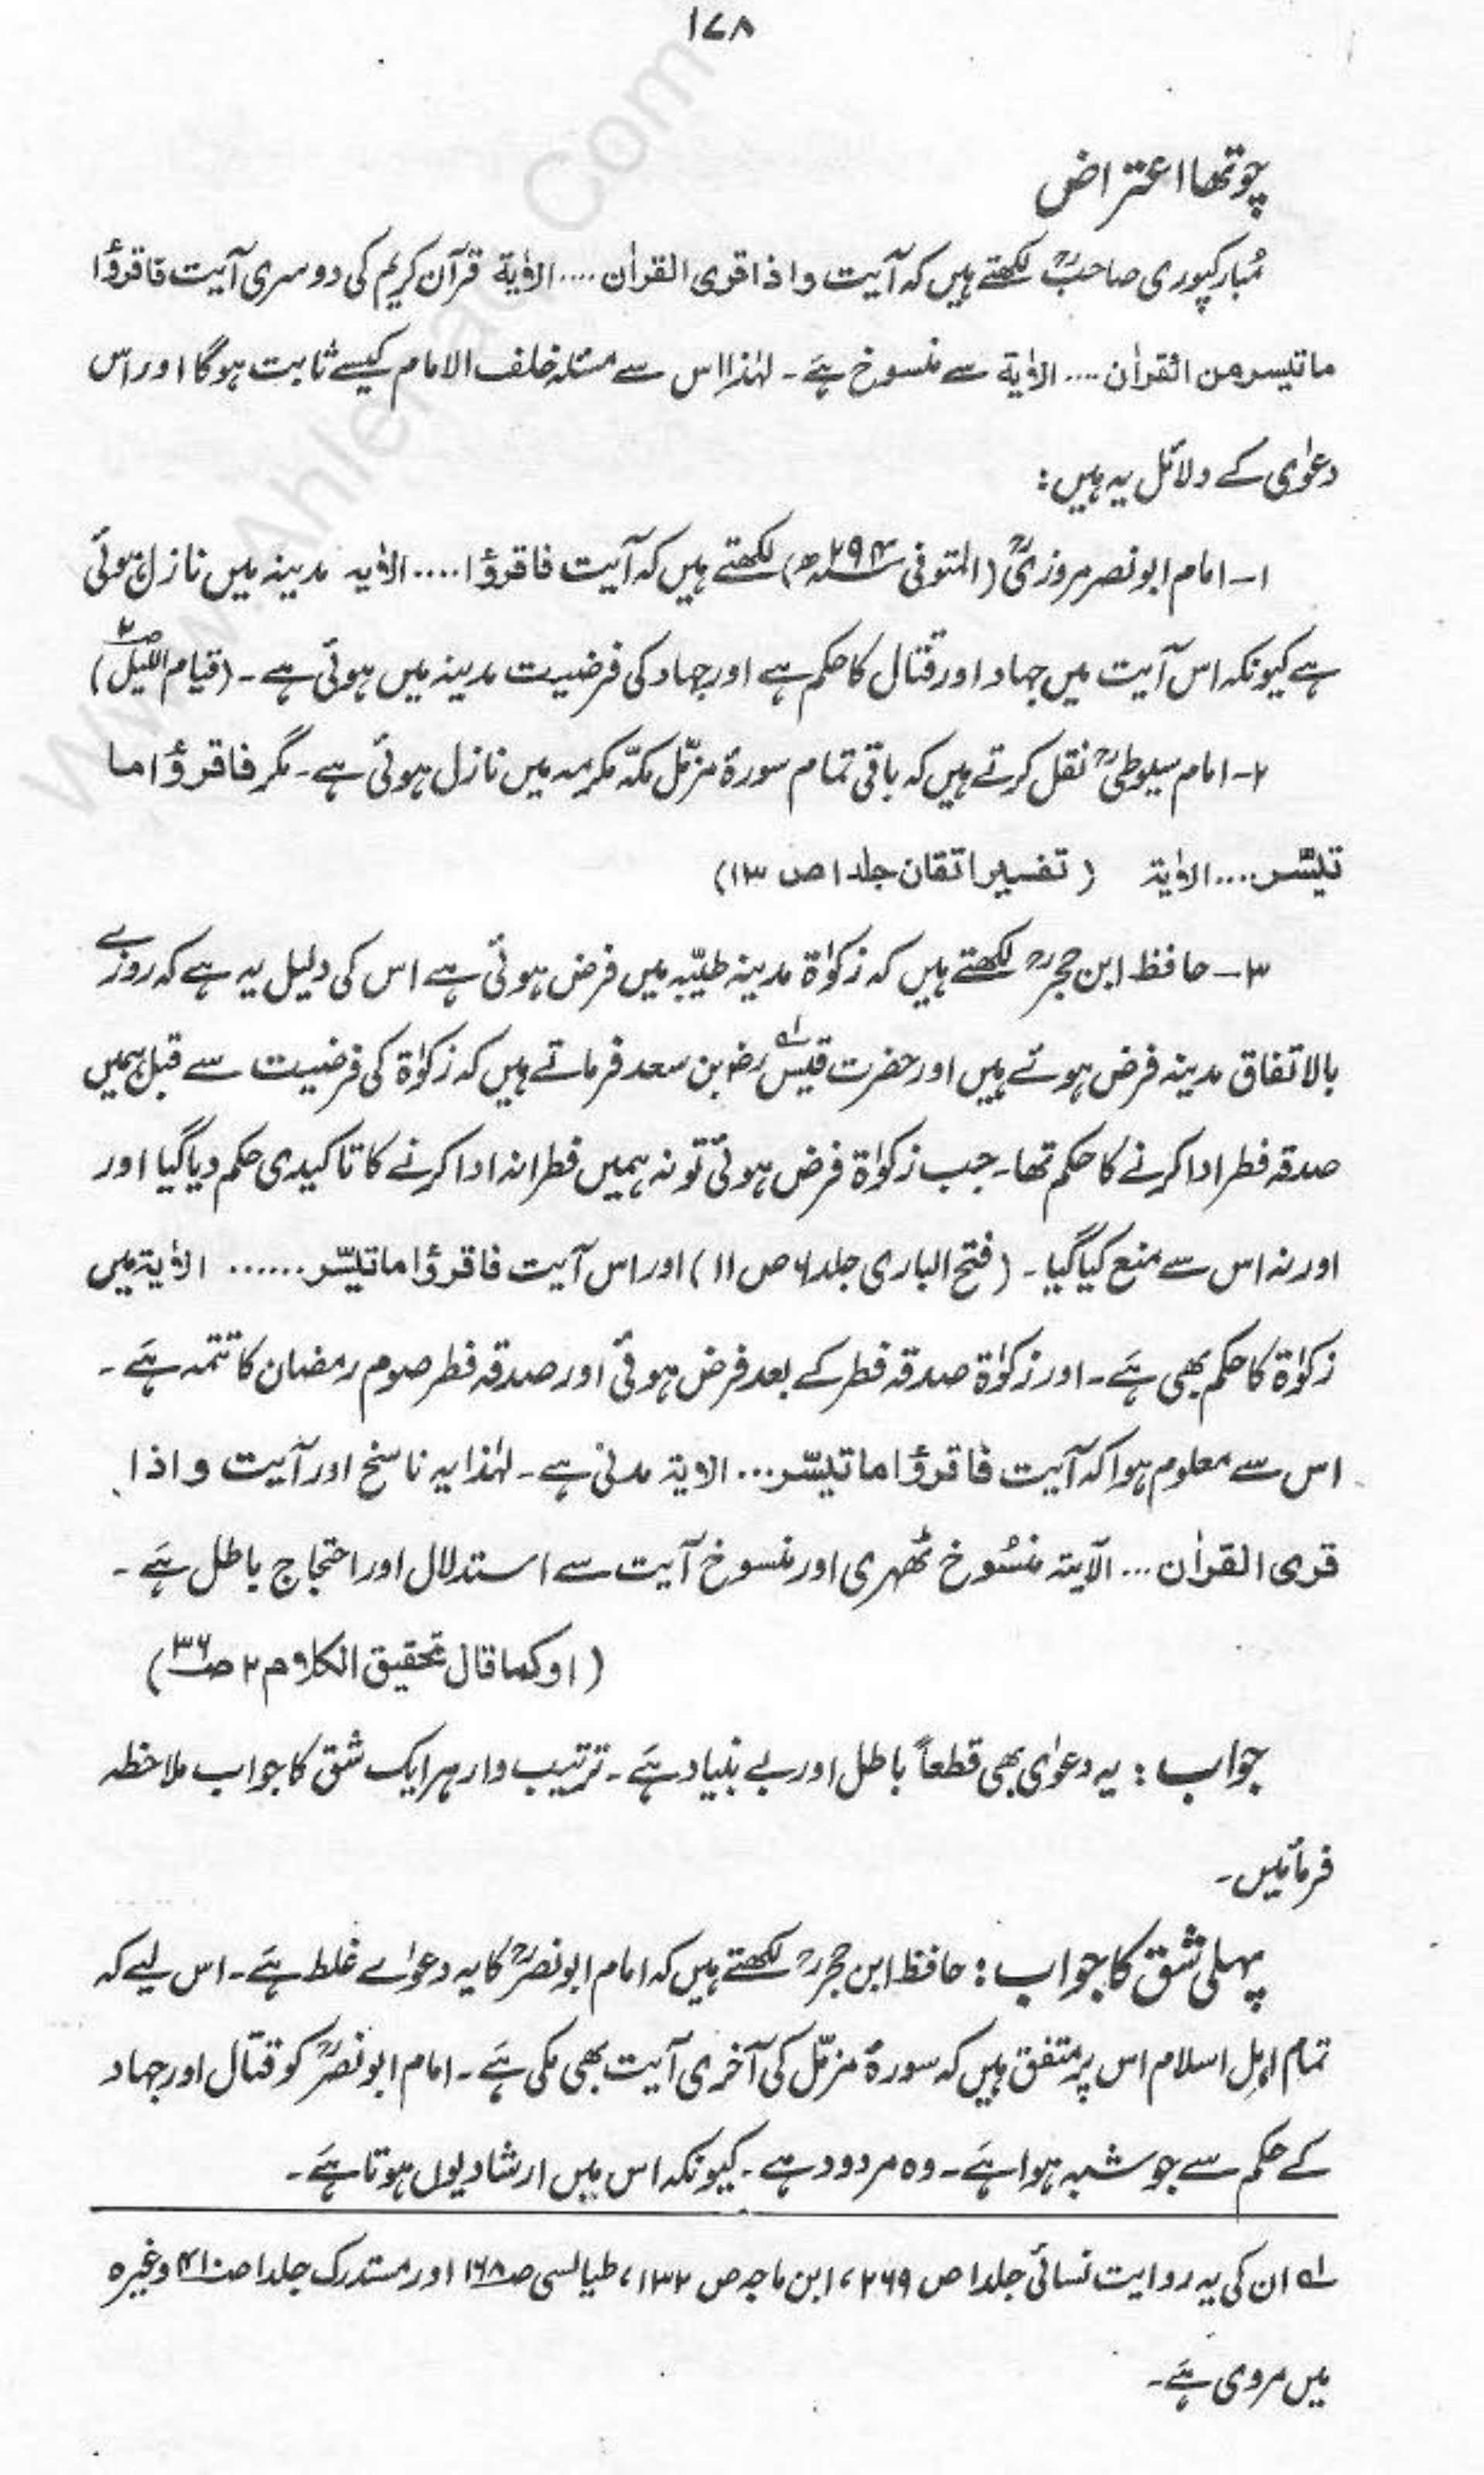 ۱۷۸
چوتھا اعتراض
مُبارکپوری صاحبؒ لکھتے ہیں کہ آیت واذا قرئ القراٰن .... الاٰیة قرآن کریم کی دوسری آیت فاقرؤا
ماتیسر من القراٰن .... الاٰیة سے منسوخ ہے۔ لہٰذا اس سے مسئلہ خلف الامام کیسے ثابت ہوگا اور اس
دعوٰی کے دلائل یہ ہیں:
۱۔ امام ابو نصر مروزیؒ (المتوفی ۲۹۴ھ) لکھتے ہیں کہ آیت فاقرؤا .... الاٰیہ مدینہ میں نازل ہوئی
ہے کیونکہ اس آیت میں جہاد اور قتال کا حکم ہے اور جہاد کی فرضیت مدینہ میں ہوئی ہے۔ (قیام اللیل ص۲)
۲۔ امام سیوطیؒ نقل کرتے ہیں کہ باقی تمام سورۂ مزمّل مکّہ مکرمہ میں نازل ہوئی ہے۔ مگر فاقرؤا ما
تیسّر .... الاٰیة (تفسیر اتقان جلد ۱ ص ۱۳)
۳۔ حافظ ابن حجرؒ لکھتے ہیں کہ زکوٰۃ مدینہ طیّبہ میں فرض ہوئی ہے اس کی دلیل یہ ہے کہ روزے
بالاتفاق مدینہ فرض ہوئے ہیں اور حضرت قیسؓ۱؎ بن سعد فرماتے ہیں کہ زکوٰۃ کی فرضیت سے قبل ہمیں
صدقہ فطر ادا کرنے کا حکم تھا۔ جب زکوٰۃ فرض ہوئی تو نہ ہمیں فطرانہ ادا کرنے کا تاکیدی حکم دیا گیا اور
اور نہ اس سے منع کیا گیا۔ (فتح الباری جلد ۶ ص ۱۱) اور اس آیت فاقرؤا ماتیسّر ...... الاٰیة میں
زکوٰۃ کا حکم بھی ہے۔ اور زکوٰۃ صدقہ فطر کے بعد فرض ہوئی اور صدقہ فطر صوم رمضان کا تتمہ ہے۔
اس سے معلوم ہوا کہ آیت فاقرؤا ماتیسّر ... الایة مدنی ہے۔ لہٰذا یہ ناسخ اور آیت واذا
قرئ القراٰن ... الآیة منسُوخ ٹھہری اور منسوخ آیت سے استدلال اور احتجاج باطل ہے۔
(او کما قال تحقیق الکلام ۲ ص۳۶)
جواب: یہ دعوٰی بھی قطعاً باطل اور بے بنیاد ہے۔ ترتیب وار ہر ایک شق کا جواب ملاحظہ
فرمائیں۔
پہلی شق کا جواب: حافظ ابن حجرؒ لکھتے ہیں کہ امام ابو نصرؒ کا یہ دعوٰے غلط ہے۔ اس لیے کہ
تمام اہل اسلام اس پر متفق ہیں کہ سورۂ مزمّل کی آخری آیت بھی مکی ہے۔ امام ابو نصرؒ کو قتال اور جہاد
کے حکم سے جو شبہ ہوا ہے۔ وہ مردود ہے۔ کیونکہ اس میں ارشاد یوں ہوتا ہے۔
۱؎ ان کی یہ روایت نسائی جلد ۱ ص ۲۶۹، ابن ماجہ ص ۱۳۲، طیالسی ص۱۶۸ اور مستدرک جلد ۱ ص۴۱۰ وغیرہ
میں مروی ہے۔